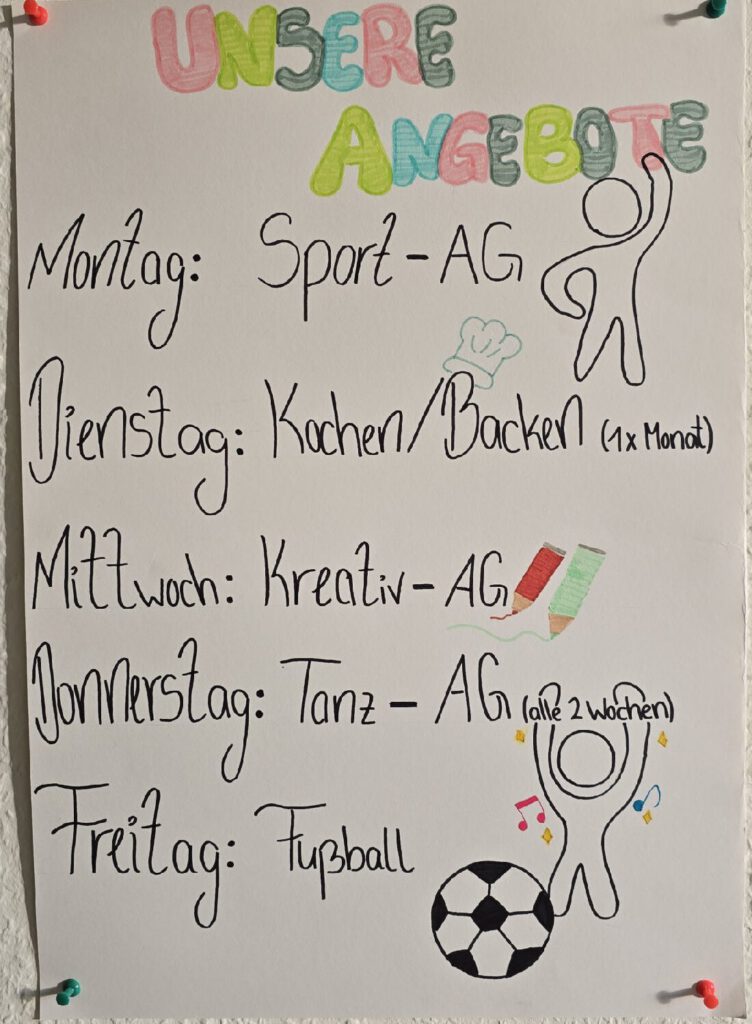 UNSERE
ANGEBOTE
Montag: Sport-AG
Dienstag: Kochen/Backen (1x Monat)
Mittwoch: Kreativ-AG
Donnerstag: Tanz-AG (alle 2 Wochen)
Freitag: Fußball